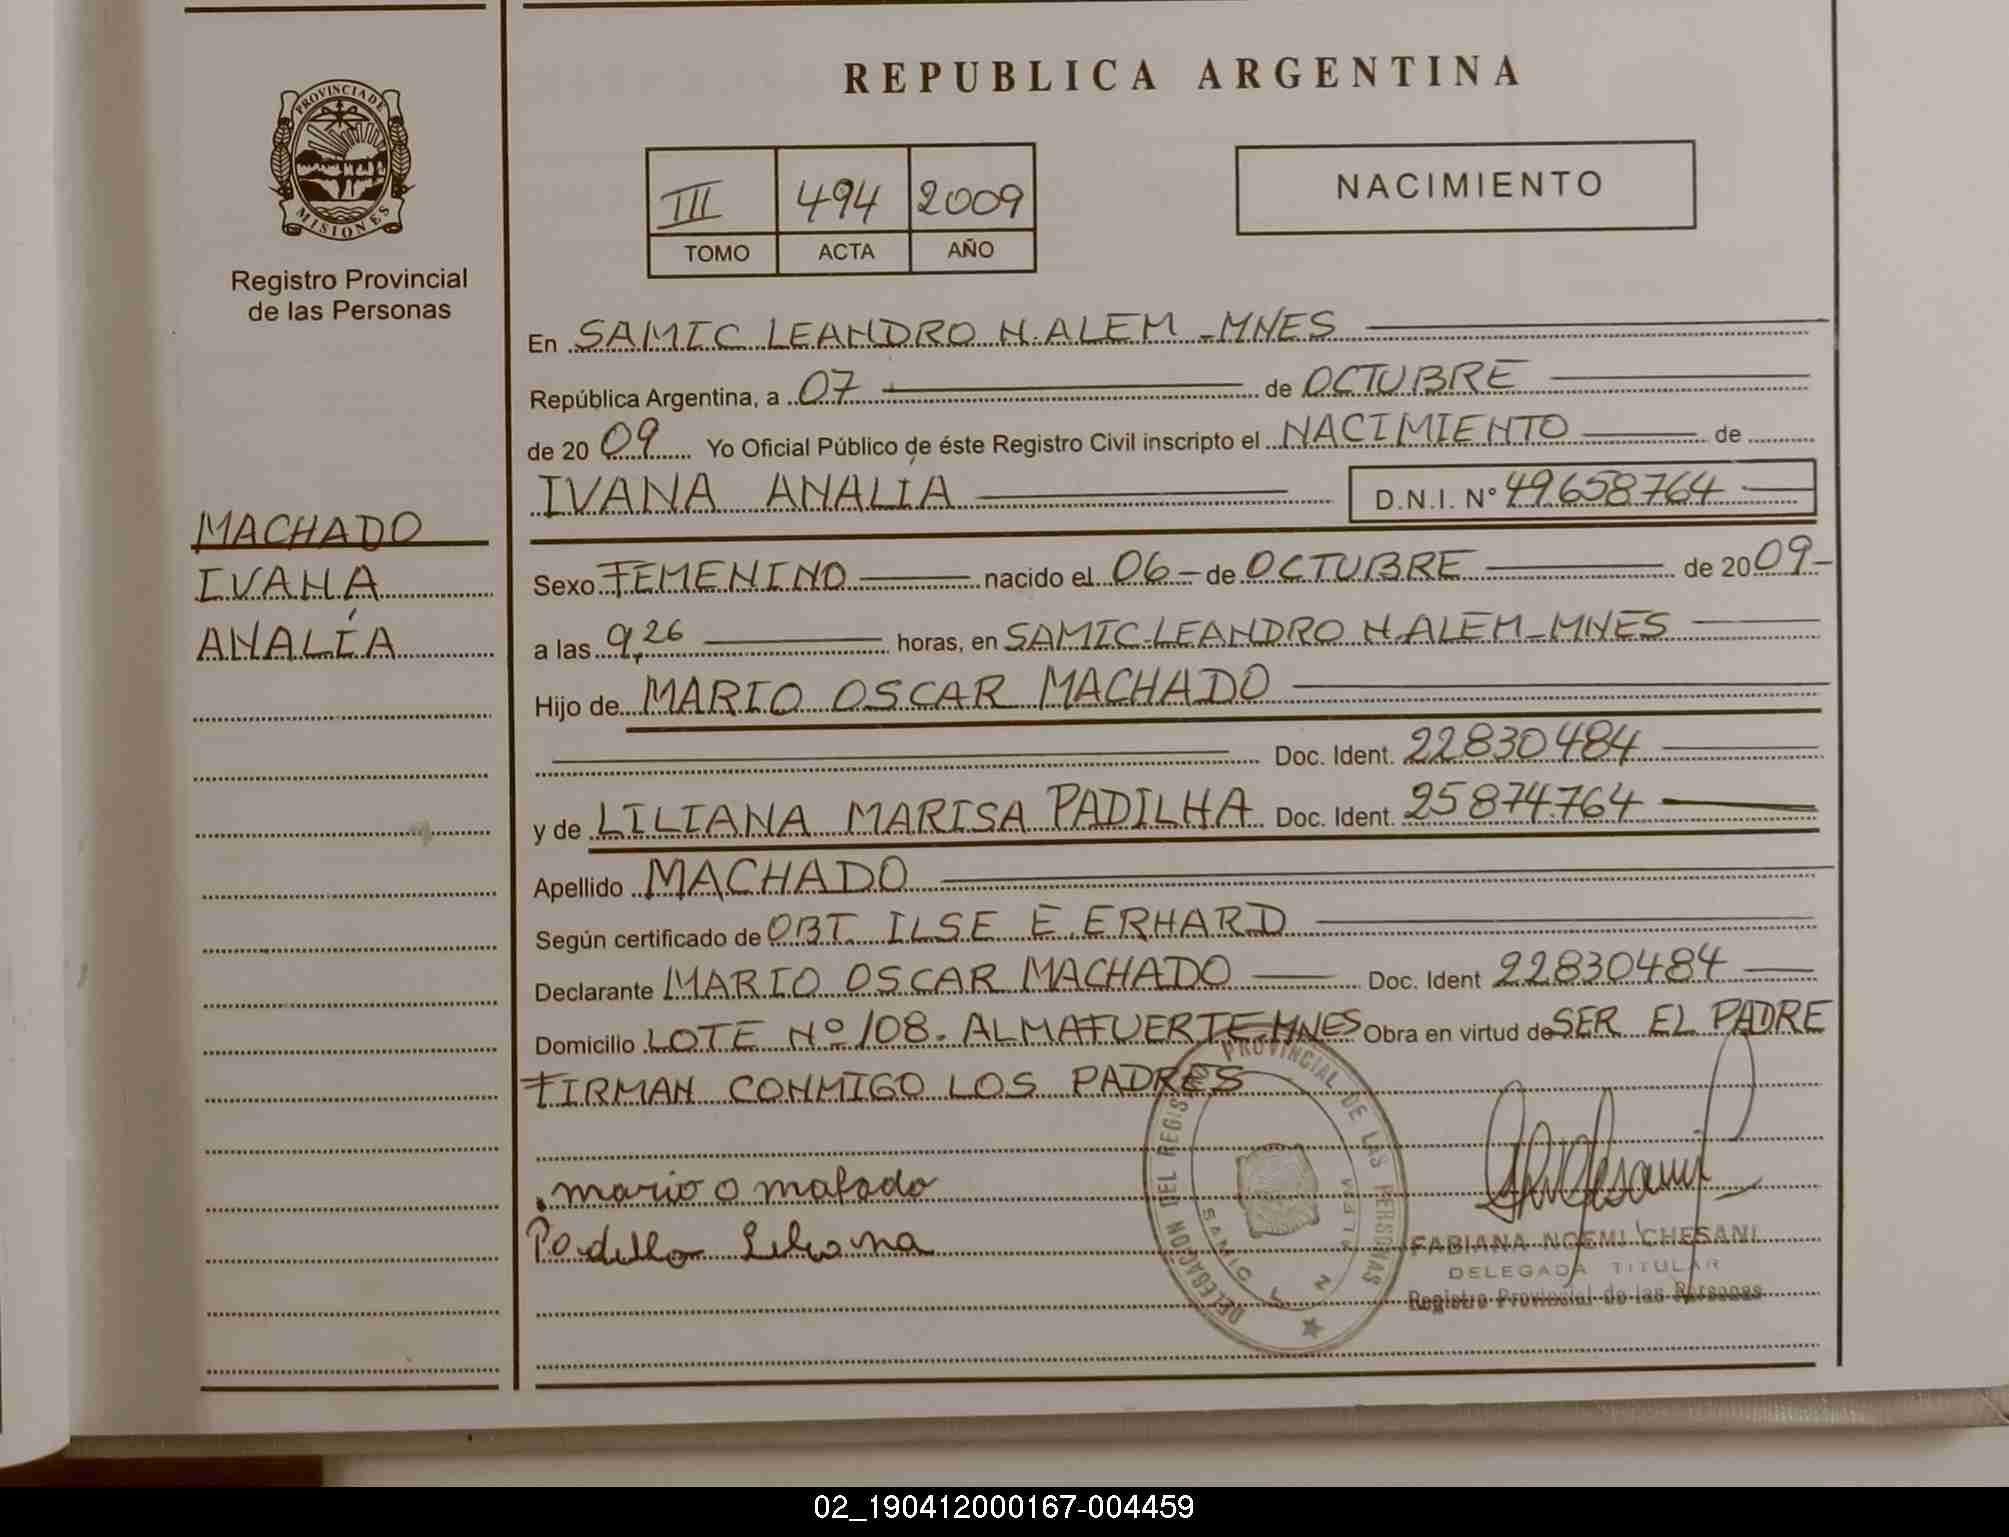 PROVINCIA DE
MISIONES
Registro Provincial
de las Personas
MACHADO
IVANA
ANALÍA
REPUBLICA ARGENTINA
III 494 2009
TOMO ACTA AÑO
NACIMIENTO
En SAMIC LEANDRO N. ALEM - MNES
República Argentina, a 07 de OCTUBRE
de 20 09 Yo Oficial Público de éste Registro Civil inscripto el NACIMIENTO de
IVANA ANALÍA D.N.I. Nº 49.658.764
Sexo FEMENINO nacido el 06 - de OCTUBRE de 20 09 -
a las 9,26 horas, en SAMIC LEANDRO N. ALEM - MNES
Hijo de MARIO OSCAR MACHADO
Doc. Ident. 22830484
y de LILIANA MARISA PADILHA Doc. Ident. 25874.764
Apellido MACHADO
Según certificado de OBT. ILSE E. ERHARD
Declarante MARIO OSCAR MACHADO Doc. Ident 22830484
Domicilio LOTE Nº 108. ALMAFUERTE. MNES Obra en virtud de SER EL PADRE
FIRMAN CONMIGO LOS PADRES
DELEGACION DEL REGISTRO PROVINCIAL DE LAS PERSONAS
SAMIC L. N. ALEM
mario o mafado
Liliana
FABIANA NOEMI CHESANI
DELEGADA TITULAR
Registro Provincial de las Personas
02_190412000167-004459